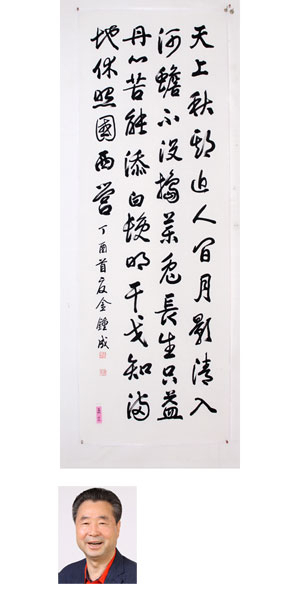 天上秋期近人間月影清入
河蟾不沒搗藥兔長生只益
丹心苦能添白髮明干戈知滿
地休照國西營 丁酉首夏金鍾成